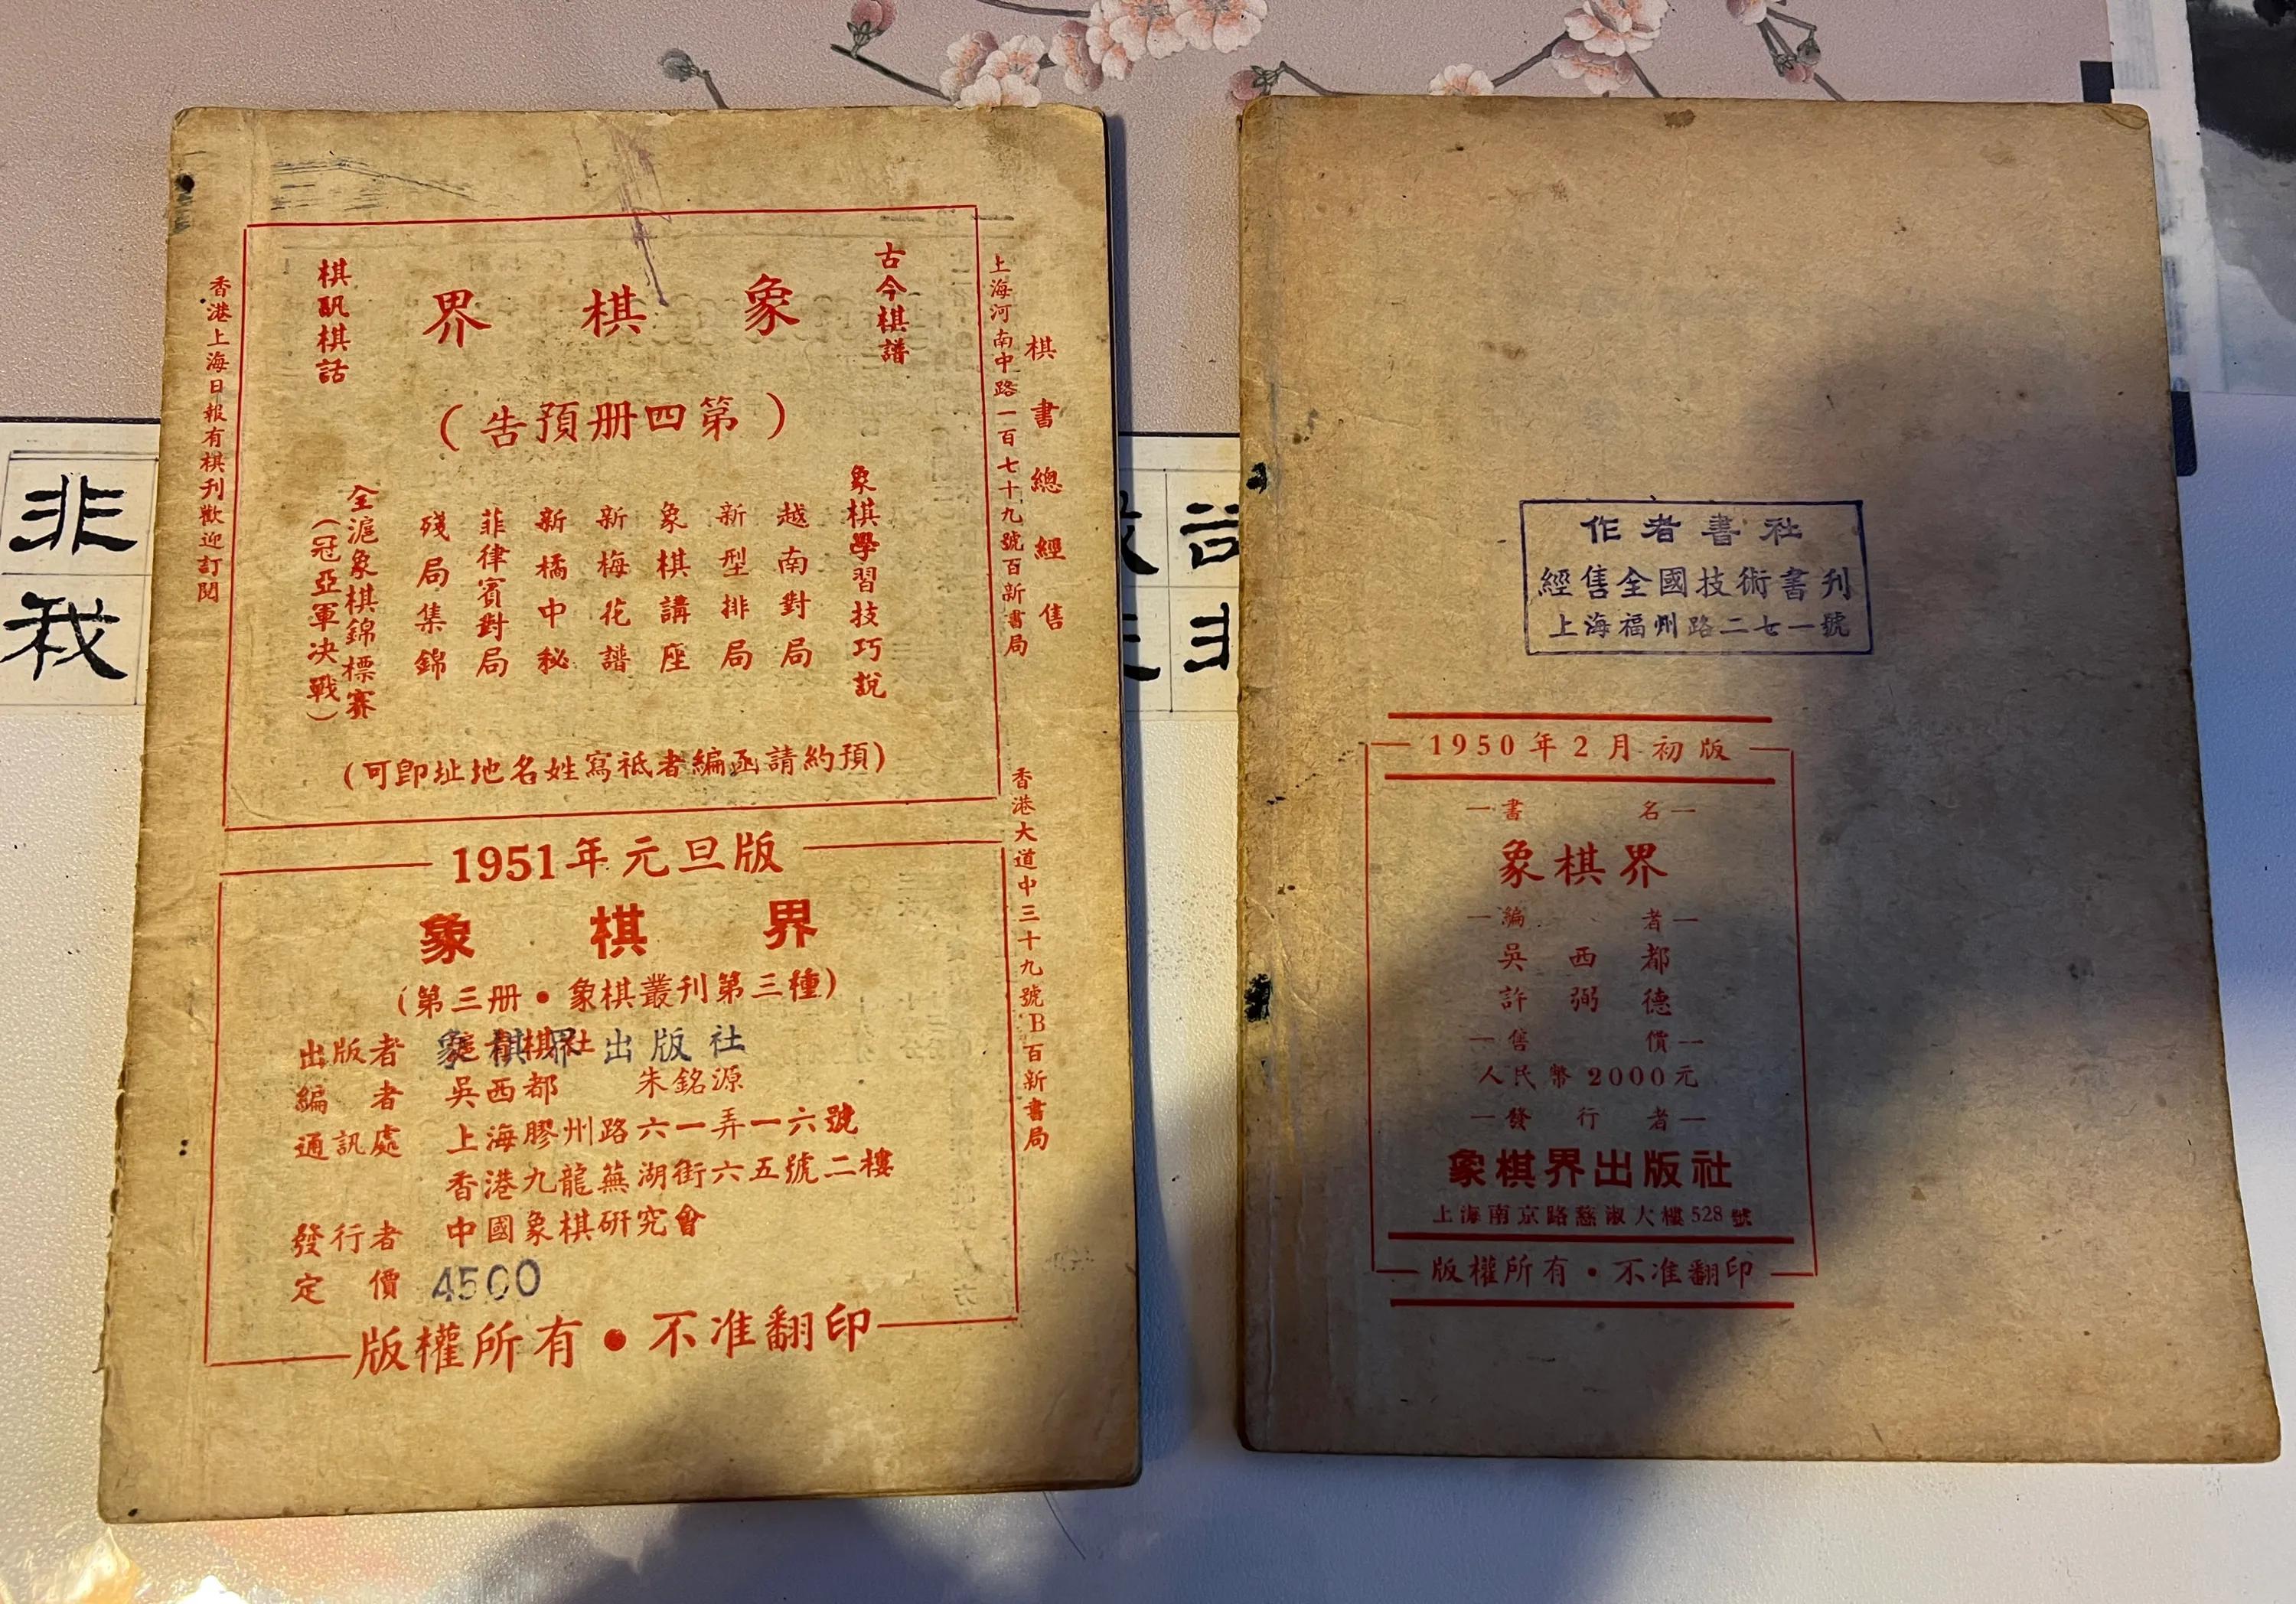 棋書總經售
上海河南中路一百七十九號百新書局
香港大道中三十九號B百新書局
古今棋譜
象棋界
棋訊棋話
(第四册預告)
象棋學習技巧說
越南對局
新型排局
象棋講座
新梅花譜
新橘中秘
菲律賓對局
殘局集錦
全滬象棋錦標賽
(冠亞軍決戰)
(預約請函編者祗寫姓名地址卽可)
香港上海日報有棋刊歡迎訂閱
1951年元旦版
象棋界
(第三册•象棋叢刊第三種)
出版者 象棋界出版社
編者 吳西都 朱銘源
通訊處 上海膠州路六一弄一六號
香港九龍蕪湖街六五號二樓
發行者 中國象棋研究會
定價 4500
版權所有•不准翻印
作者書社
經售全國技術書刊
上海福州路二七一號
1950年2月初版
書名
象棋界
編者
吳西都
許弼德
售價
人民幣2000元
發行者
象棋界出版社
上海南京路慈淑大樓528號
版權所有•不准翻印
非
我